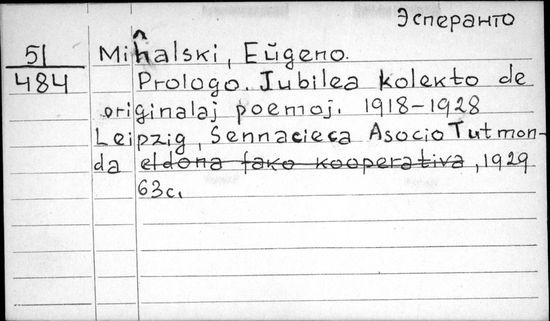 Эсперанто
51
484
Miĥalski, Eŭgeno.
Prologo. Jubilea kolekto de
originalaj poemoj. 1918-1928
Leipzig, Sennacieca Asocio Tutmon-
da eldona fako kooperativa, 1929
63c.